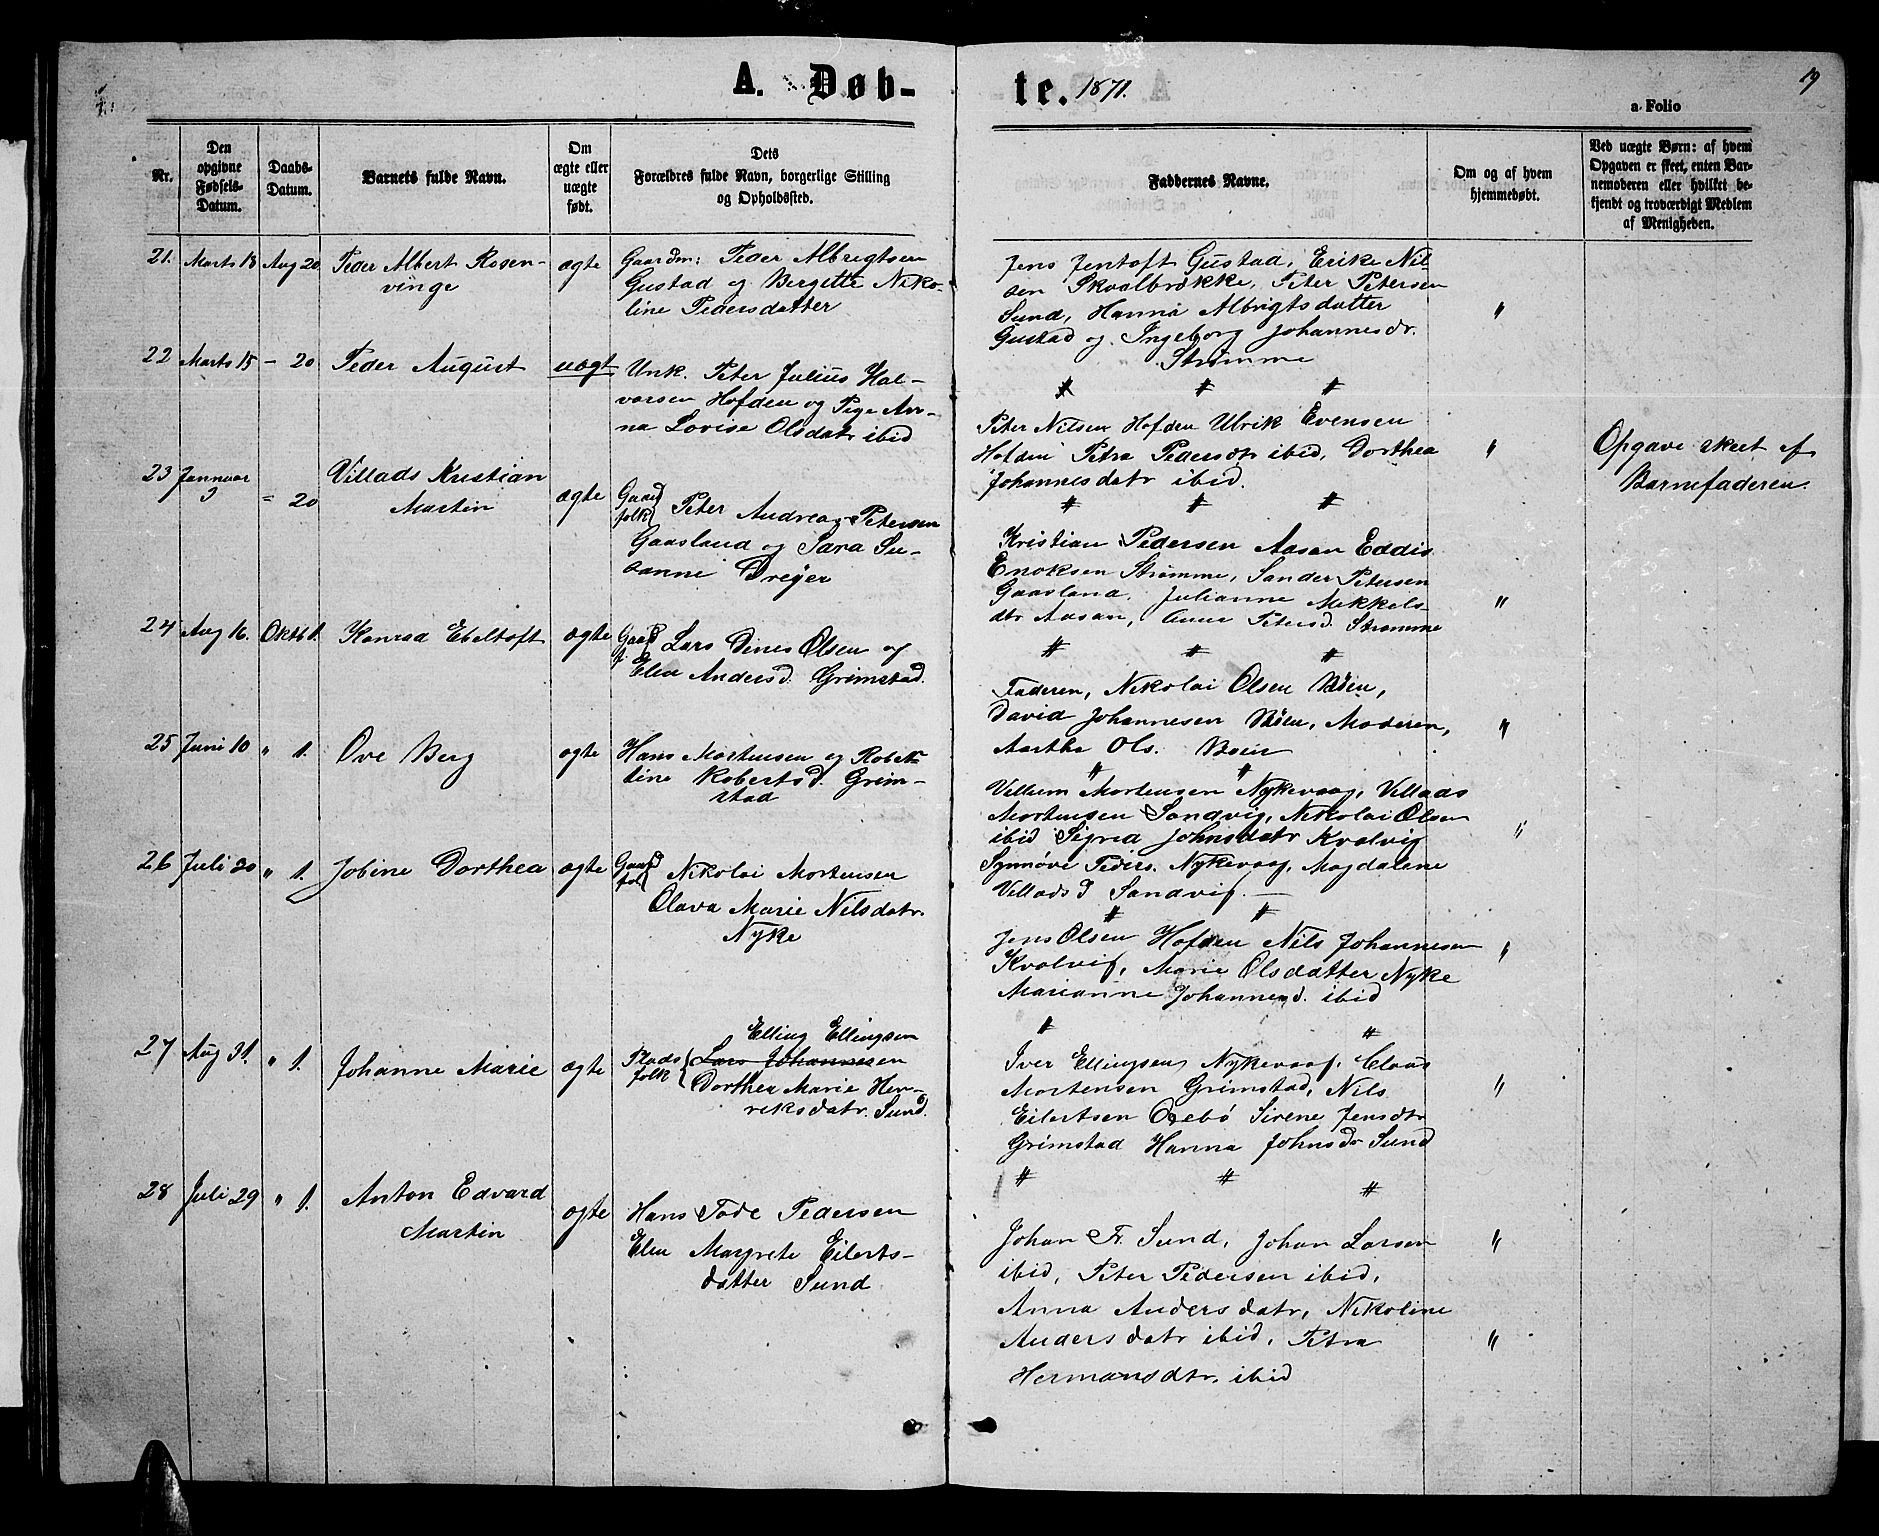 A. Døb-
te. 1871.
19
a Folio
Nr.
Den opgivne Fødsels-Datum.
Daabs-Datum.
Barnets fulde Navn.
Om ægte eller uægte født.
Dets Forældres fulde Navn, borgerlige Stilling og Opholdssted.
Faddernes Navne.
Om og af hvem hjemmedøbt.
Ved uægte Børn: af hvem Opgaven er skeet, enten Barnemoderen eller hvilket bekjendt og troværdigt Medlem af Menigheden.
21. Marts 18 Aug 20 Peder Albert Rosen-
vinge
ægte
Gaardm: Peder Albrigtsen
Gustad og Bergitte Niko-
line Pedersdatter
Jens Jentoft Gustad, Erike Nil-
sen Skvalbrække, Peter Petersen
Sund, Hanna Albrigtsdatter
Gustad og Ingeborg Johannesdr.
Strømme
"
22 Marts 15 - 20 Peder August
uægt
Unk. Peter Julius Hal-
vorsen Hofden og Pige An-
na Lovise Olsdatr ibid
Peter Nilsen Hofden Ulrik Evensen
Hofden Petra Pedersdtr ibid, Dorthea
Johannesdatr ibid.
"
Opgave skeet af
Barnefaderen.
23 Januar
9
= 20
Villads Kristian
Martin
ægte
Gaard
folk Peter Andreas Petersen
Gaasland og Sara Su-
sanne Dreyer
Kristian Pedersen Aasan Eddis
Enoksen Strømme, Sander Petersen
Gaasland, Julianne Mikkels-
dtr Aasan, Anne Petersd. Strømme
"
24 Aug 16. Oktb 1. Konrad Ebeltoft
ægte
Gaard
f. Lars Dines Olsen og
Elen Andersd. Grimstad.
Faderen, Nikolai Olsen Bøen,
David Johannesen Bøen, Moderen,
Marthe Ols. Bøen
"
25 Juni 10 " 1. Ove Berg
ægte
Hans Mortensen og Robet-
tine Robertsd. Grim-
stad
Villum Mortensen Nykevaag, Villads
Mortensen Sandvig, Nikolai Olsen
ibid Sigrid Johnsdatr Kvalvig
Synnøve Peders. Nykevaag, Magdalene
Villads d Sandvig. —
"
26 Juli 30 " 1. Jobine Dorthea
ægte
Gaard
fol Nikolai Mortensen
Olava Marie Nilsdatr.
Nyke
Jens Olsen Hofden Nils Johannesen
Kvalvig, Marie Olsdatter Nyke
Marianne Johannesd. ibid
"
27 Aug 31. " 1. Johanne Marie
ægte
Plads
folk
Elling Ellingsen
Lars Johannesen
Dorthea Marie Hen-
riksdatr. Sund.
Iver Ellingsen Nykevaag. Claus
Mortensen Grimstad, Nils
Eilertsen Ørebø Sirene Jensdtr
Grimstad Hanna Johnsdr Sund
"
28 Juli 29 " 1. Anton Edvard
Martin
ægte
Hans Tode Pedersen
Elen Margrete Eilerts-
datter Sund
Johan Fr. Sund, Johan Larsen
ibid, Peter Pedersen ibid,
Anna Andersdatr, Nikoline
Andersdatr ibid, Petra
Hermansdtr. ibid
"
"